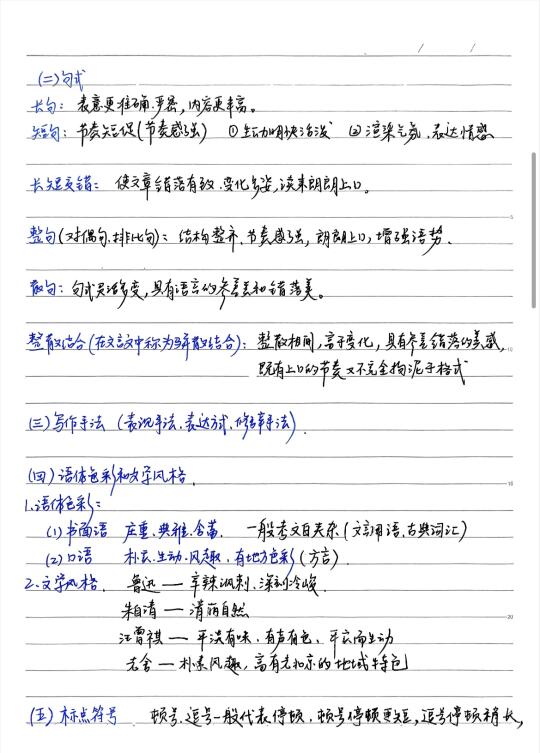 (二)句式
长句：表意更准确.严密，内容更丰富。
短句：节奏短促(节奏感强) ①生动明快活泼 ②渲染气氛.表达情感
长短交错：使文章错落有致.变化多姿，读来朗朗上口。
整句(对偶句.排比句)：结构整齐.节奏感强，朗朗上口，增强语势.
散句：句式灵活多变，具有语言的参差美和错落美。
整散结合(在文言文中称为骈散结合)：整散相间，富于变化，具有参差错落的美感，
既有上口的节奏又不完全拘泥于格式
(三)写作手法 (表现手法.表达方式.修辞手法).
(四)语体色彩和文学风格.
1.语体色彩：
(1)书面语 庄重.典雅.含蓄. 一般考文白夹杂(文言用语.古典词汇)
(2)口语 朴实.生动.风趣.有地方色彩(方言).
2.文学风格. 鲁迅—辛辣讽刺.深刻冷峻.
朱自清—清丽自然
汪曾祺—平淡有味.有声有色.平实而生动
老舍—朴素风趣，富有老北京的地域特色
(五)标点符号 顿号.逗号一般代表停顿，顿号停顿更短，逗号停顿稍长，